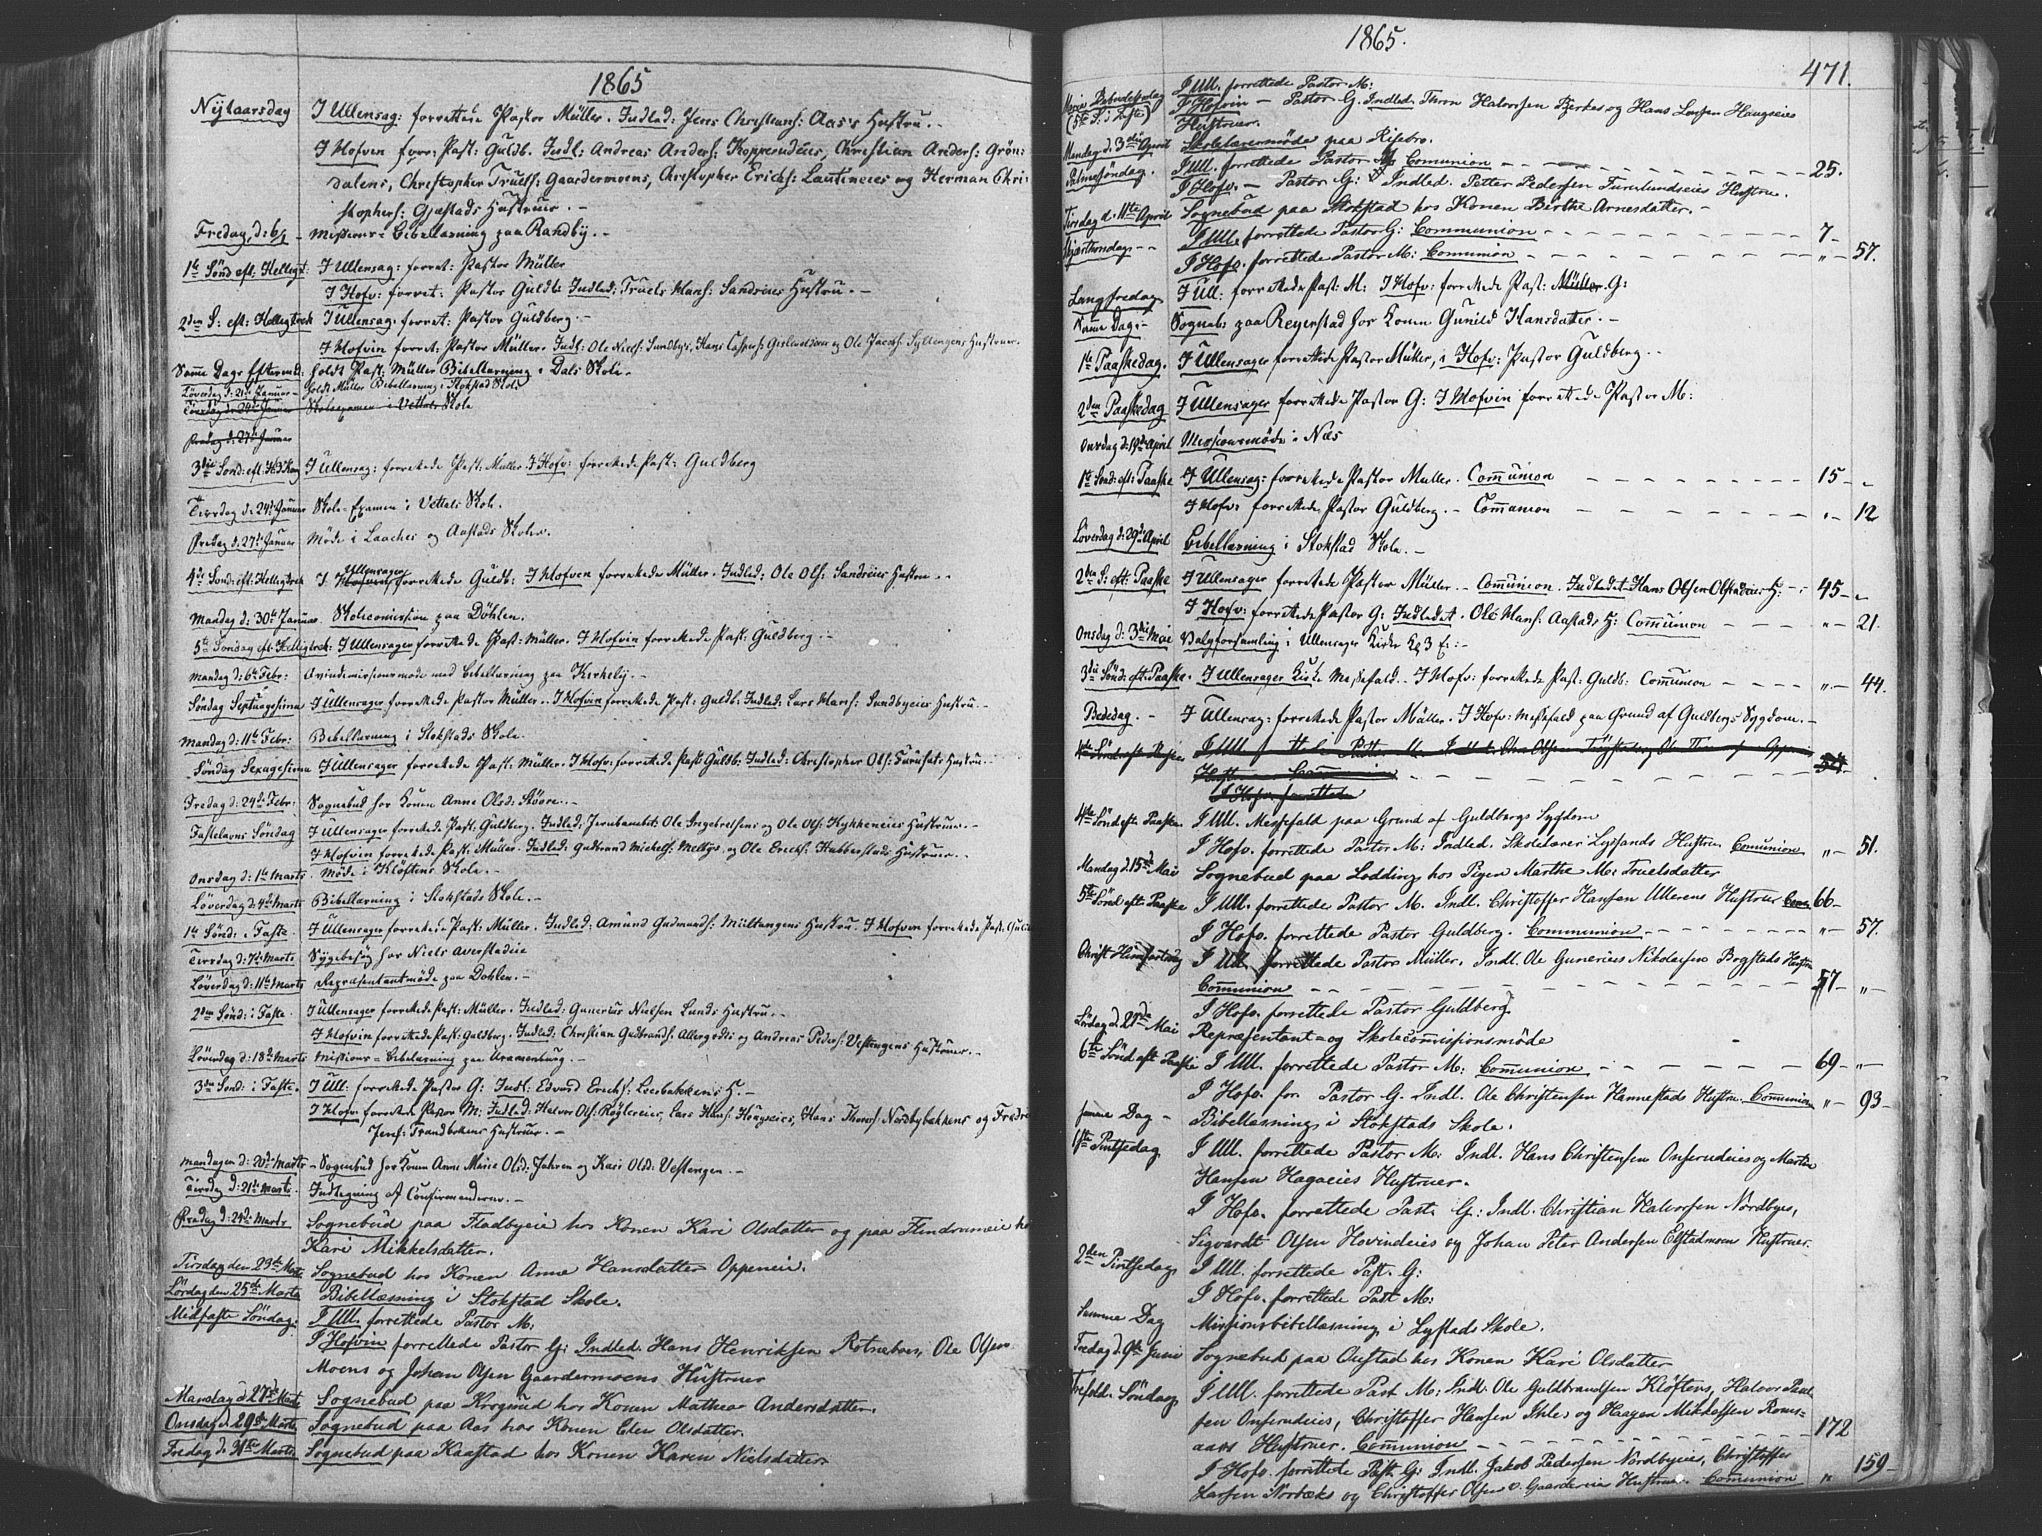 1865
Nytaarsdag I Ullensag: forrettede Pastor Müller. Indled: Jens Christians: Aas's Hustru. -
I Hofvin forr: Past: Guldb. Indl: Andreas Anders: Kopperudeies, Christian Anders: Grön-
dalens, Christopher Truels: Gaardermoens, Christopher Erichs: Lautineies og Herman Chri-
stophers: Gjestads Hustruer. -
Fredag d: 6/1 Missions-Bibellæsning paa Randby. -
1te Sönd eft: Helligt I Ullensag: forret: Pastor Müller
I Hofv: forret: Pastor Guldb: Indled: Truels Hans: Sandneies Hustru. -
2den S: eft: Helligtrek I Ullensag: forret: Pastor Guldberg. -
I Hofvin forret: Pastor Müller. Indl: Ole Niels: Sundbys, Hans Caspers: og Ole Jacobs: Syllingens Hustruer.
Samme Dags Efterm: holdt Past: Müller Bibellæsning i Dals Skole.
Löverdag d: 21de Januar - holdt Müller Bibellæsning i Stokstad Skole
Tirsdag d: 24de Januar Skoleexamen i Vettals Skole
Fredag d: 27de Januar
3die Sönd: eft: H3Kong I Ullensag: forrettede Past: Müller. I Hofv: forrettede Past: Guldberg
Tirsdag d: 24de Januar Skole-Examen i Vettals Skole.
Fredag d: 27de Januar Möde i Laaches og Aastads Skoler.
4de Sönd: eft: Helligtrek I Hofvin Ullensager forrettede Guldb: I Hofven forrettede Müller. Indled: Ole Ols: Sandneies Hustru. -
Mandag d: 30te Januar Skolecomission paa Döhlen.
5te Söndag eft Helligtrek: I Ullensager forrettede Past: Müller. I Hofvin forrettede Past: Guldberg. -
Mandag d: 6te Febr: Qvindemissionsmöde med Bibellæsning paa Kirkeby. -
Söndag Septuagesima I Ullensager forrettede Pastor Müller. I Hofven forrettede Past: Guldb: Indled: Lars Hans: Sundbyeies Hustru. -
Mandag d: 11te Febr: Bibellæsning i Stokstads Skole.
Söndag Sexagesima I Ullensager forrettede Past: Müller. I Hofv: forretted. Past: Guldb: Indled: Christopher Ols: Furusets Hustru. -
Fredag d: 24de Febr: Sognebud hos Konen Anne Olsd: Stöver. -
Fastelavns Söndag I Ullensager forrettede Past: Guldberg. Indled: Jernbanebet: Ole Ingebretsens og Ole Ols: Hykkeneies Hustruer. -
I Hofvin forrettede Past: Müller. Indled: Gulbrand Michels: Melbys, og Ole Erichs: Habberstads Hustruer. -
Onsdag d: 1te Marts Möde i Klöftens Skole. -
Löverdag d: 4de Marts Bibellæsning i Stokstads Skole. -
1te Sönd: i Faste. I Ullensager forrettede Past: Müller. Indled: Amund Gudmunds: Mültangens Hustru. I Hofven forrettede Past: Guld
Tirsdag d: 7de Marts Sygebesög hos Niels Averstadeie
Löverdag d: 11te Marts Repræsentantmöde paa Dohlen. -
2den Sönd: i Faste. I Ullensager forrettede Past: Müller. Indled: Gunerius Nielsen Lunds Hustru. -
I Hofvin forrettede Past: Guldberg. Indled: Christian Gulbrands: Allergodts og Andreas Peders: Vestengens Hustruer. -
Löverdag d: 18de Marts Missions-Bibellæsning paa Aramenburg. -
3die Sönd: i Faste. I Ull: forrettede Pastor G: Indl: Edvard Erichs: Leesbakkens H. -
I Hofv: forrettede Pastor M: Indled: Halvor Ols: Röglereies, Lars Hans: Haugseies, Hans Thores: Nordbybakkens og Fredri
Jens: Frandbekens Hustruer. -
Mandagen d: 20de Marts - Sognebud hos Konen Anne Marie Olsd: Jahren og Kari Olsd: Vestengen. -
Tirsdag d: 21de Marts. Indtegning af Confirmanderne. -
Fredag d: 24de Marts Sognebud paa Fladbyeie hos Konen Kari Olsdatter og paa Hindrumeie h
Kari Mikkelsdatter.
Tirsdag den 23de Marts Sognebud hos Konen Anne Hansdatter Oppeneie.
Lördag den 25de Marts Bibellæsning i Stokstad Skole.
Midfaste Söndag. I Ull. forrettede Pastor M.
I Hofvin forrettede Pastor G: Indled. Hans Henriksen Rotneboen, Ole Olsen
Moens og Johan Olsen Gaardermoens Hustruer
Mandag d 27de Marts Sognebud paa Krogsund hos Konen Mathea Andersdatter.
Onsdag d 29de Marts Sognebud paa Aas hos Konen Eden Olsdatter.
Fredag d. 31te Marts Sognebud paa Kaastad hos Konen Karen Nielsdatter
1865.
471.
Mariæ Bebudelsesdag I Ull. forrettede Pastor M:
(5te S. i Faste) I Hofvin - Pastor G. Indled. Thron Halvorsen Bjerkes og Hans Larsen Haugseies
Hustruer.
Mandag d. 3die April Skolelærermöde paa Risebro.
Palmesöndag. I Ull. forrettede Pastor M Comunion - - - 25.
I Hofv. - Pastor G: Indled. Petter Pedersen Furulundseies Hustru.
Tirsdag d. 11te April Sognebud paa Stokstad hos Konen Berthe Arnesdatter. -
Skjærthorsdag - - I Ull. forrettede Pastor G: Communion - - - 7 -
I Hofv. forrettede Pastor M: Comunion - - - " - 57.
Langfredag I Ull: forrettede Past: M: I Hofv: forrettede Past: Müller. G:
Samme Dag - Sogneb: paa Reyerstad for Konen Gunild Hansdatter. -
1te Paaskedag. I Ullensager forrettede Pastor Müller, i Hofv: Pastor Guldberg. -
2den Paaskedag I Ullensager forrettede Pastor G: I Hofvin forrettede Pastor M:
Onsdag d: 19de April Missionsmöde i Næs
1te Sönd: eft: Paaske I Ullensag: forrettede Pastor Müller. Communion - - - 15 - "
I Hofv: forrettede Pastor Guldberg. - Communion - - - " - 12
Löverdag d: 29de April Bibellæsning i Stokstad Skole. -
2den S: eft: Paaske I Ullensager forrettede Pastor Müller. - Communion. Indledet Hans Olsen Olstadeies H: - 45 - "
I Hofv: forrettede Pastor G: Indledet. Ole Hans: Aastads H: Communion - - - " - 21.
Onsdag d: 3die Mai Valgforsamling i Ullensager Kirke Kl 3 E: -
3die Sönd: eft: Paaske. I Ullensager Kirke Messefald. - I Hofv: forrettede Past: Guldb: Communion - - - " - 44.
Bededag. - I Ullensag: forrettede Pastor Müller. I Hofv: Messefald paa Grund af Guldbergs Sygdom. -
I Hofv. forrettede
4de Sönd eft Paaske I Ull. Messefald paa Grund af Guldbergs Sygdom
I Hofv. forrettede Pastor M: Indled. Skolelærer Lysands Hustru. Comunion " - 51.
Mandag d. 15de Mai Sognebud paa Lodding hos Pigen Marthe M: Truelsdatter
5te Sönd eft Paaske I Ull. forrettede Pastor M. Indl. Christoffer Hansen Ullerens Hustruer Com. 66 -
I Hofv. forrettede Pastor Guldberg. Communion - - - " - 57.
Christi Himmelfartsdag I Ull. forrettede Pastor Müller. Indl. Ole Guneries Nikolaisen Bogstads Hustru
Comunion - - - 57 - "
I Hofv. forrettede Pastor Guldberg
Lördag d. 20de Mai Repræsentant- og Skolecommissionsmöde
6te Sönd eft Paaske I Ull. forrettede Pastor M: Comunion - - - 69 - "
I Hofv. for. Pastor G. Indl. Ole Christensen Hannestads Hustru. Comunion " - 93 -
Samme Dag - Bibellæsning i Stokstads Skole.
1ste Pintsedag I Ull. forrettede Pastor M: Indl. Hans Christensen Onserudeies og Martin
Hansen Hagaeies Hustruer.
I Hofv. forrettede Past. G: Indl. Christian Halvorsen Nordbyes,
Sigvardt Olsen Hovindeies og Johan Peter Andersen Elstadmoen Hustruer.
2den Pintsedag I Ull. forrettede Past. G:
I Hofv. forrettede Past M:
Samme Dag Missionsbibellæsning i Lystad Skole.
Fredag d. 9de Juni Sognebud paa Onstad hos Konen Kari Olsdatter
Trefold. Söndag I Ull. forrettede Past M: Indl. Ole Guldbrandsen Klöftens, Halvor Paul-
sen Onserudeies, Christoffer Hansen Ihles og Haagen Mikkelsen Roms-
aaes Hustruer. Comunion - - - 172
I Hofv. forrettede Past. G: Indl. Jakob Pedersen Nordbyeies, Christoffer
Larsen Norbeks og Christoffer Olsen v. Gaardereies Hustruer. Comunion " 159 -